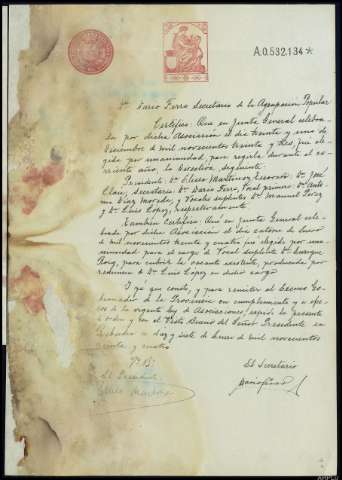 A.0.532.134*
Dn. Dario Ferro Secretario de la Agrupación Popular
Certifico: Que en Junta General celebra-
da por dicha Asociación el día treinta y uno de
Diciembre de mil novecientos treinta y tres, fue ele-
gida por unanimidad, para regirla durante el co-
rriente año, la Directiva siguiente:
Presidente Dn. Eliseo Martínez, Dn. José
Secretario Dn. Dario Ferro, Vocal primero Dn. Anto-
nio Díaz y Vocales suplentes Dn. Manuel Pérez
y Dn. Luis López, respectivamente
También Certifico: Que en Junta General cele-
brada por dicha Asociación el día catorce de Enero
de mil novecientos treinta y cuatro fue elegido por una-
nimidad para el cargo de Vocal suplente Dn. Enrique
Roig, para cubrir la vacante existente, producida por
renuncia de Dn. Luis López en dicho cargo.
Y pa que conste, y para remitir al Excmo Go-
bernador de la Provincia en cumplimiento y a efec-
tos de la vigente ley de Asociaciones, expido la presente
orden y con el Visto Bueno del Señor Presidente en
a diez y siete de Enero de mil novecientos
treinta y cuatro
Vº Bº
El Presidente
Eliseo Martínez
El Secretario
Dario Ferro